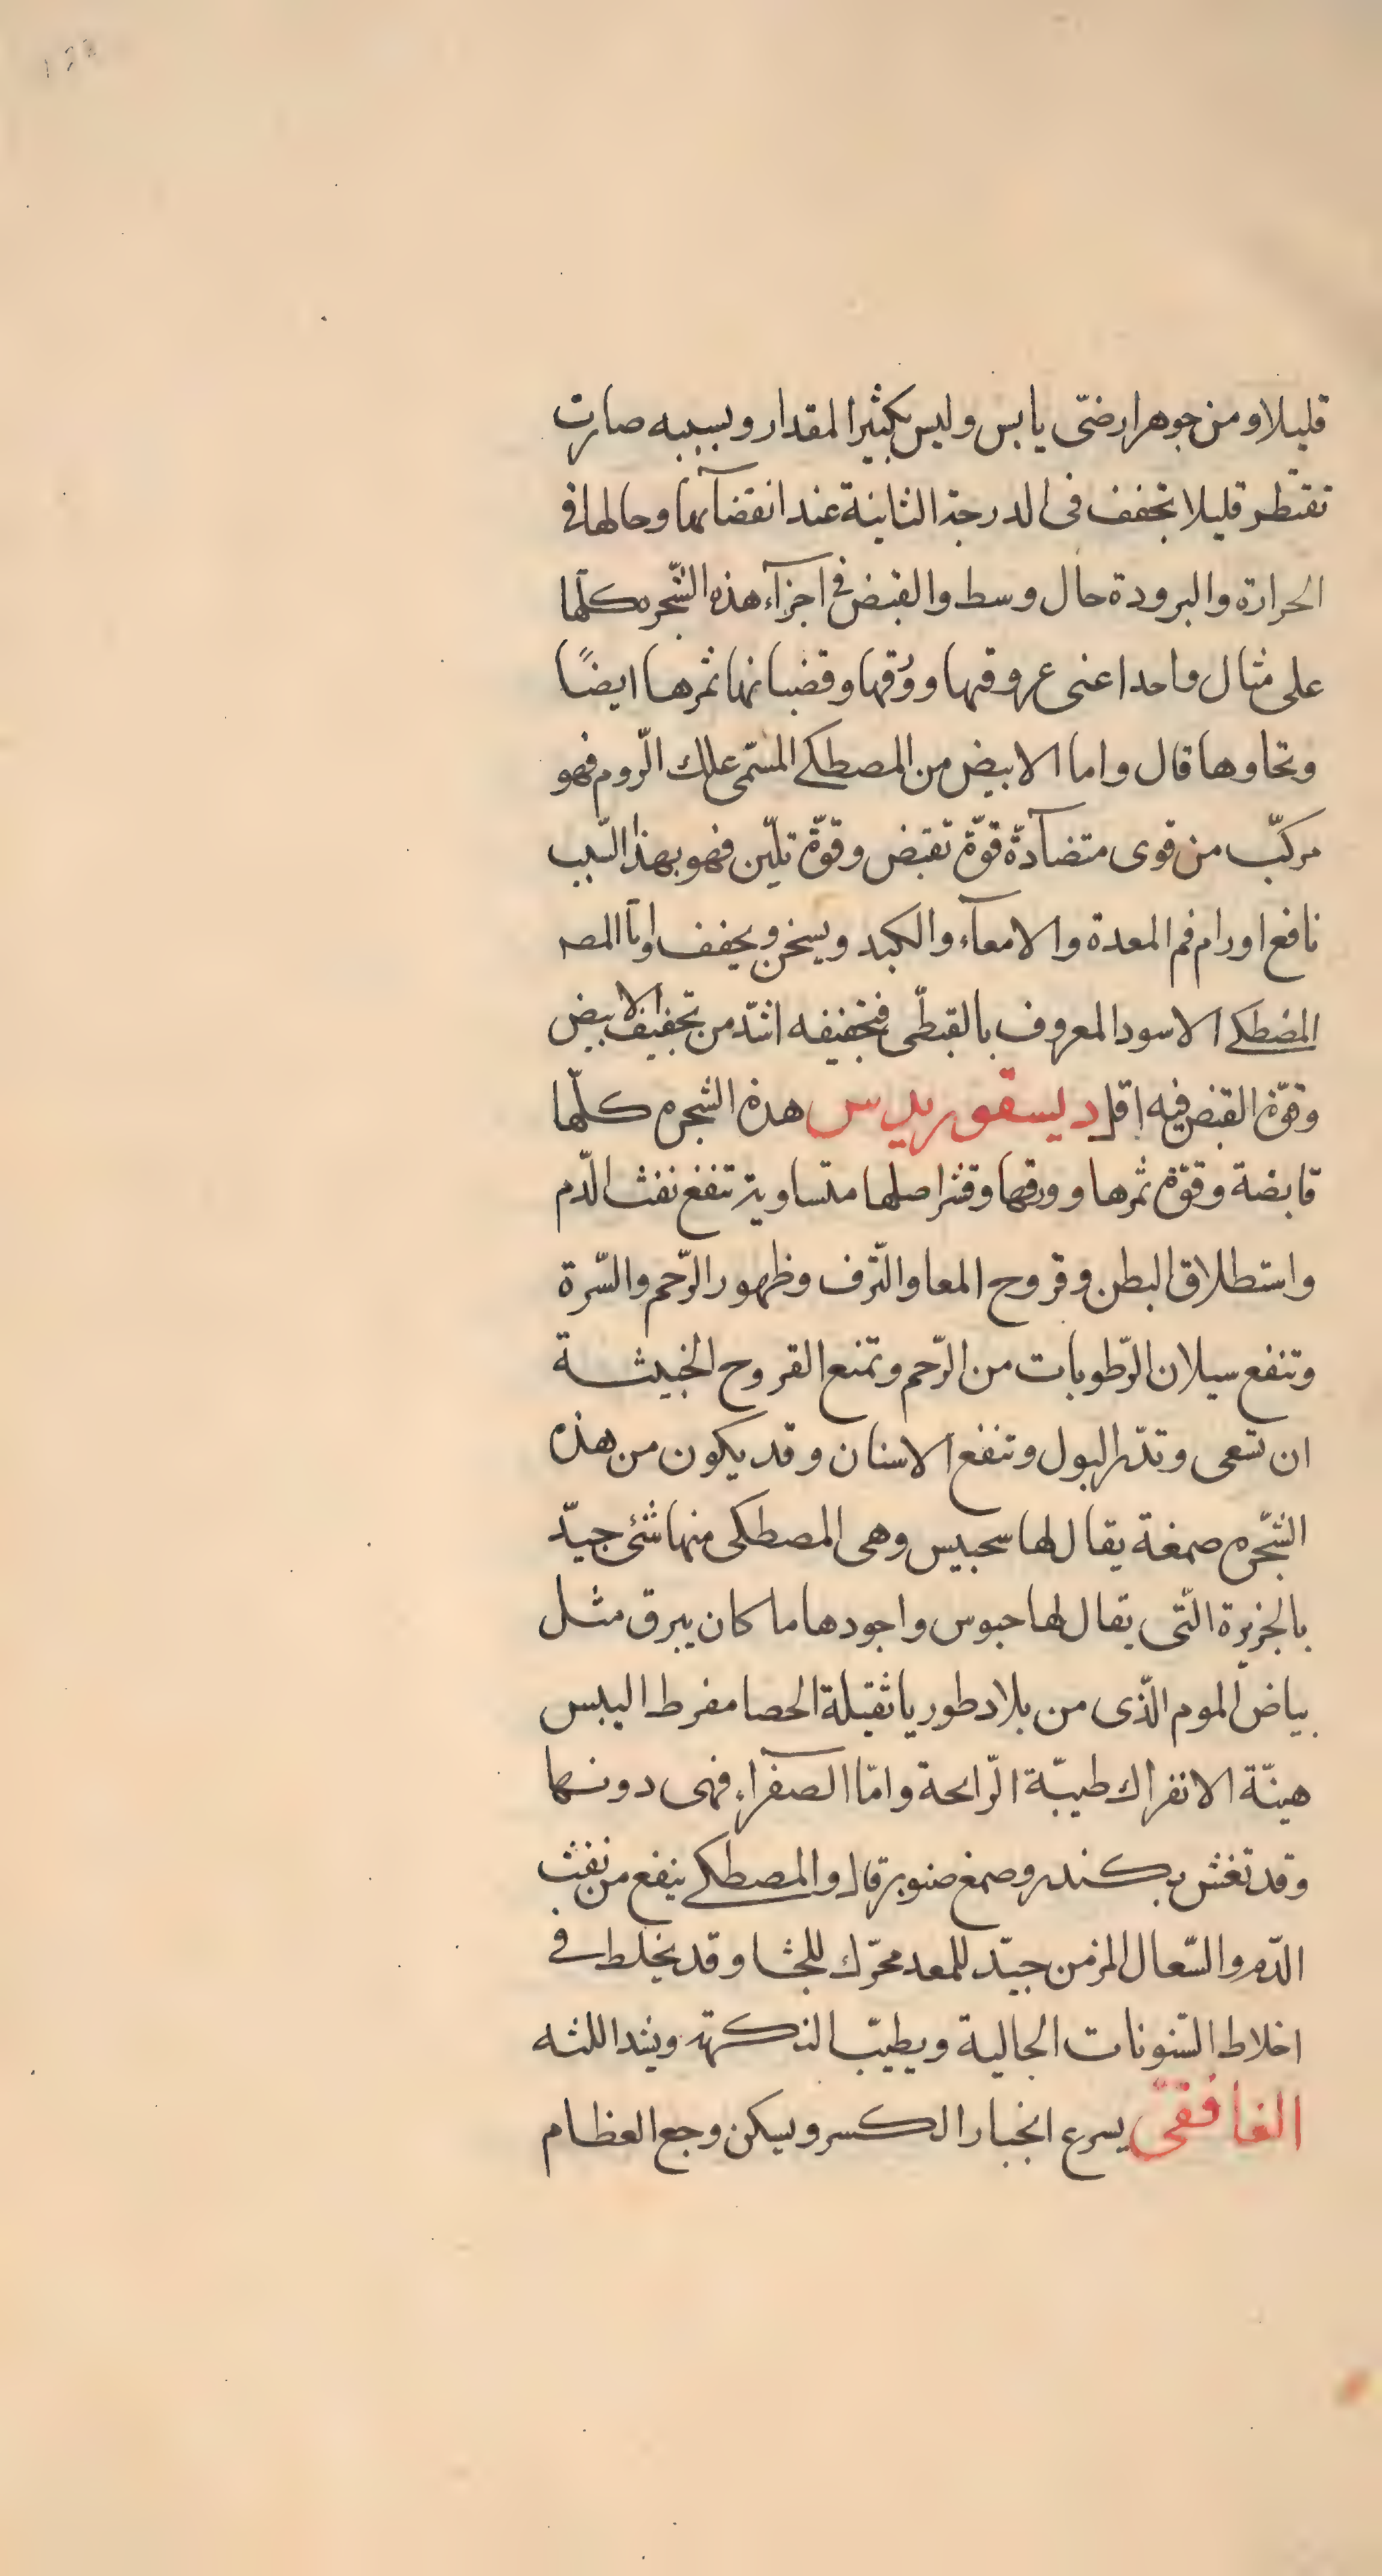 ١٢٢
قليلا ومن جوهر ارضىّ يابس وليس بكثير المقدار وبسببه صارت
تقتطر قليلا تجفف فى الدرجة الثانية عند انقضآئها وحالها فى
الحرارة والبرودة حال وسط والقبض فى اجزآء هذه الشّجره كلّها
على مثال واحد اعنى عروقها ووُرقها وقضبانها ثمرها ايضًا
ولحاوها قال واما الابيض من المصطكے المسّمى علك الرّوم فهو
مركّب من قوى متضآدّة قوّة تقبض وقوّة تليّن فهو بهذا السّبب
نافع اورام فم المعدة والامعآء والكبد ويسخن ويجفف وامّا المصـ
المصطكے الاسود المعروف بالقبطّى فتجفيفه اشّد من تجفيف الابيض
وقوّة القبض فيه اقل ديسقوريدس هذه الشجره كلّها
قابضة وقوّة ثمرها وورقها وقشر اصلها متساوية تنفع نفث الدّم
واستطلاق البطن وقروح المعا والنّزف وظهور الرّحم والسّرة
وتنفع سيلان الرّطوبات من الرّحم وتمنع القروح الخبيثـة
ان تسعى وتدّر البول وتنفع الاسنان وقد يكون من هذه
الشّجره صمغة يقال لها سحبيس وهى المصطكى منها شئ جيّد
بالجزيرة الّتى يقال لها حبوس واجودها ما كان يبرق مثـل
بياض الموم الّذى من بلاد طوريا ثقيلة الحصا مفرط اليبس
هينّة الانفراك طيبّة الرّائحة وامّا الصفرآء فهى دونـها
وقد تغش بكندر وصمغ صنوبر قال والمصطكے ينفع من نفث
الدّم والسّعال المزمن جيّد للمعد محرّك للجشا وقد يخلط فى
اخلاط السّنونات الجالية ويطيّب النكهة ويشد اللثه
الغافقىّ يسرع انجبار الكسر ويسكن وجع العظـام